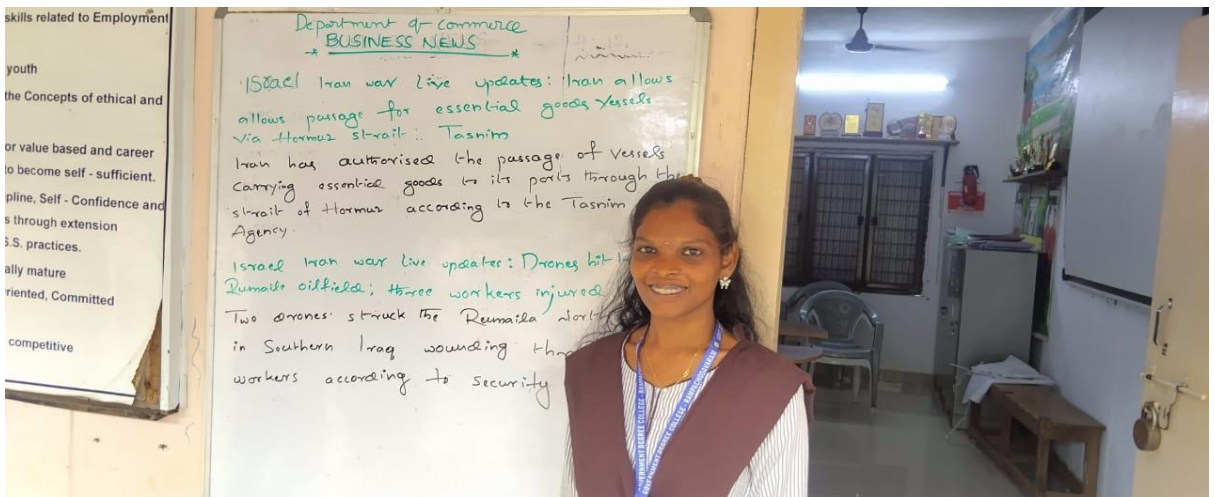 skills related to Employment
youth
the Concepts of ethical and
or value based and career
to become self - sufficient.
pline, Self - Confidence and
s through extension
S.S. practices.
ally mature
riented, Committed
competitive
Department of commerce
BUSINESS NEWS
Israel Iran war live updates: Iran allows
allows passage for essential goods vessels
via Hormuz strait: Tasnim
Iran has authorised the passage of vessels
carrying essential goods to its ports through the
strait of Hormuz according to the Tasnim
Agency.
Israel Iran war live updates: Drones hit
Rumaila oilfield; three workers injured
Two drones struck the Reumaila North
in Southern Iraq wounding
workers according to security
GOVERNMENT DEGREE COLLEGE - RAMPACHODAVARAM